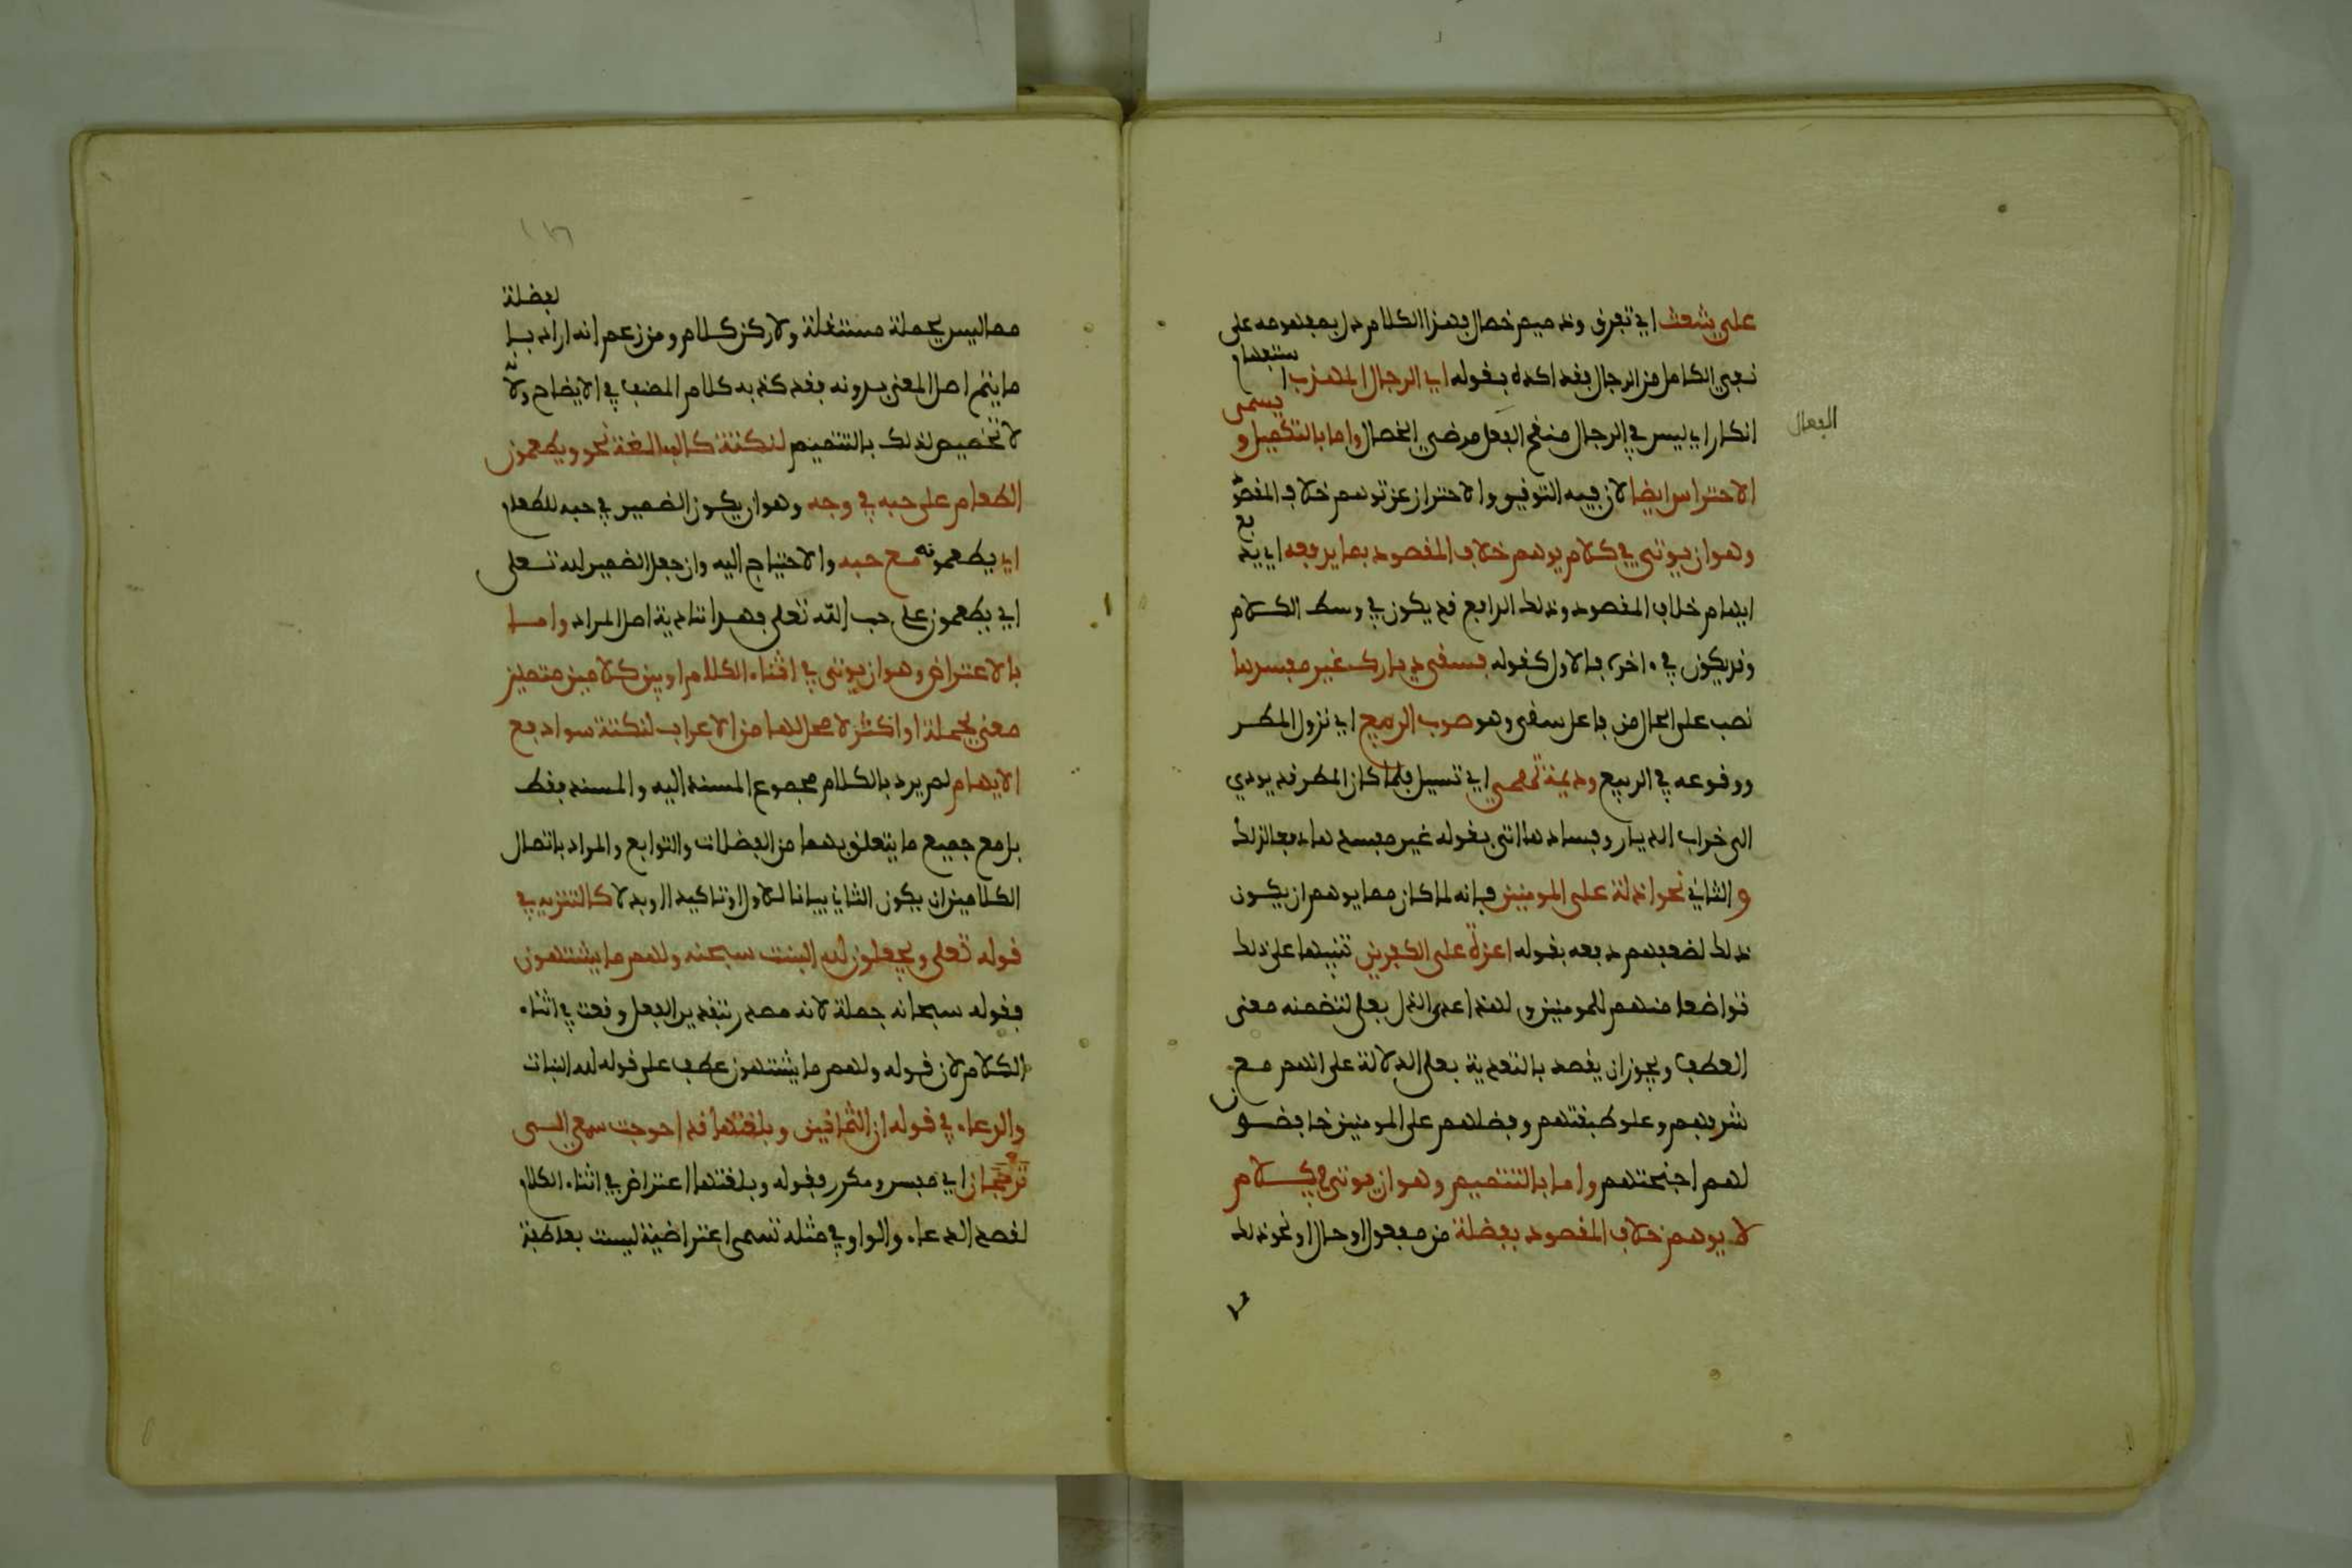 على شعث اي تفرق وذميم خصال فهذا الكلام دل بمفهومه على
نفي الكامل من الرجال فقد اكده بقوله اي الرجال المهذب استفهام
انكار اي ليس في الرجال منقح الفعل مرضي الخصال واما بالتكميل ويسمى
الفعال
الاحتراس ايضا لان فيه التوفيو والاحتراز عن توهم خلاف المقصود
وهو ان يوتى في كلام يوهم خلاف المقصود بما يرفعه اي يدفع
ايهام خلاف المقصود وذلك الرافع قد يكون في وسط الكلام
وقد يكون في ءاخره فالاول كقوله فسقى ديارك غير مفسدها
نصب على الحال من فاعل سقى وهو صوب الربيع اي نزول المطر
ووقوعه في الربيع وديمة تهمي اي تسيل فلما كان المطر قد يودي
الى خراب الديار وفسادها اتى بقوله غير مفسدها دفعا لذلك
والثاني نحو اذلة على المومنين فانه لما كان مما يوهم ان يكون
ذلك لضعفهم دفعه بقوله اعزة على الكفرين تنبيها على ذلك
تواضعا منهم للمومنين ولهذا عدى الذل بعلى لتضمنه معنى
العطف ويجوز ان يقصد بالتعدية بعلى الدلالة على انهم مع
شرفهم وعلو طبقتهم وفضلهم على المومنين خافضون
لهم اجنحتهم واما بالتتميم وهو ان يوتى في كلام
لا يوهم خلاف المقصود بفضلة من مفعول او حال او نحو ذلك
مما ليس بجملة مستقلة ولا ركن كلام ومن زعم انه اراد بالفضلة
ما يتم اصل المعنى بدونه فقد كذبه كلام المصنف في الايضاح ولانه
لا تخصيص لذلك بالتتميم لنكتة كالمبالغة نحو ويطعمون
الطعام على حبه في وجه وهو ان يكون الضمير في حبه للطعام
اي يطعمونه مع حبه والاحتياج اليه وان جعل الضمير لله تعلى
اي يطعمون على حب الله تعلى فهو لتادية اصل المراد واما
بالاعتراض وهو ان يوتى في اثناء الكلام او بين كلامين متصلين
معنى بجملة او اكثر لا محل لها من الاعراب لنكتة سوا دفع
الايهام لم يرد بالكلام مجموع المسند اليه والمسند فقط
بل مع جميع ما يتعلق بهما من الفضلات والتوابع والمراد باتصال
الكلامين ان يكون الثاني بيانا للاول او تاكيدا او بدلا كالتنزيه في
قوله تعلى ويجعلون لله البنت سبحنه ولهم ما يشتهون
فقوله سبحانه جملة لانه مصدر بتقدير الفعل وقعت في اثناء
الكلام لان قوله ولهم ما يشتهون عطف على قوله لله البنات
والدعاء في قوله ان الثمانين وبلغتها قد احوجت سمعي الى
ترجمان اي مفسر ومكرر فقوله وبلغتها اعتراض في اثناء الكلام
لقصد الدعاء والواو في مثله تسمى اعتراضية ليست بعاطفة